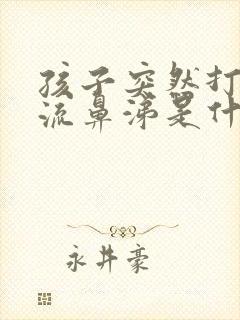 孩子突然打
流鼻涕是什
永井豪